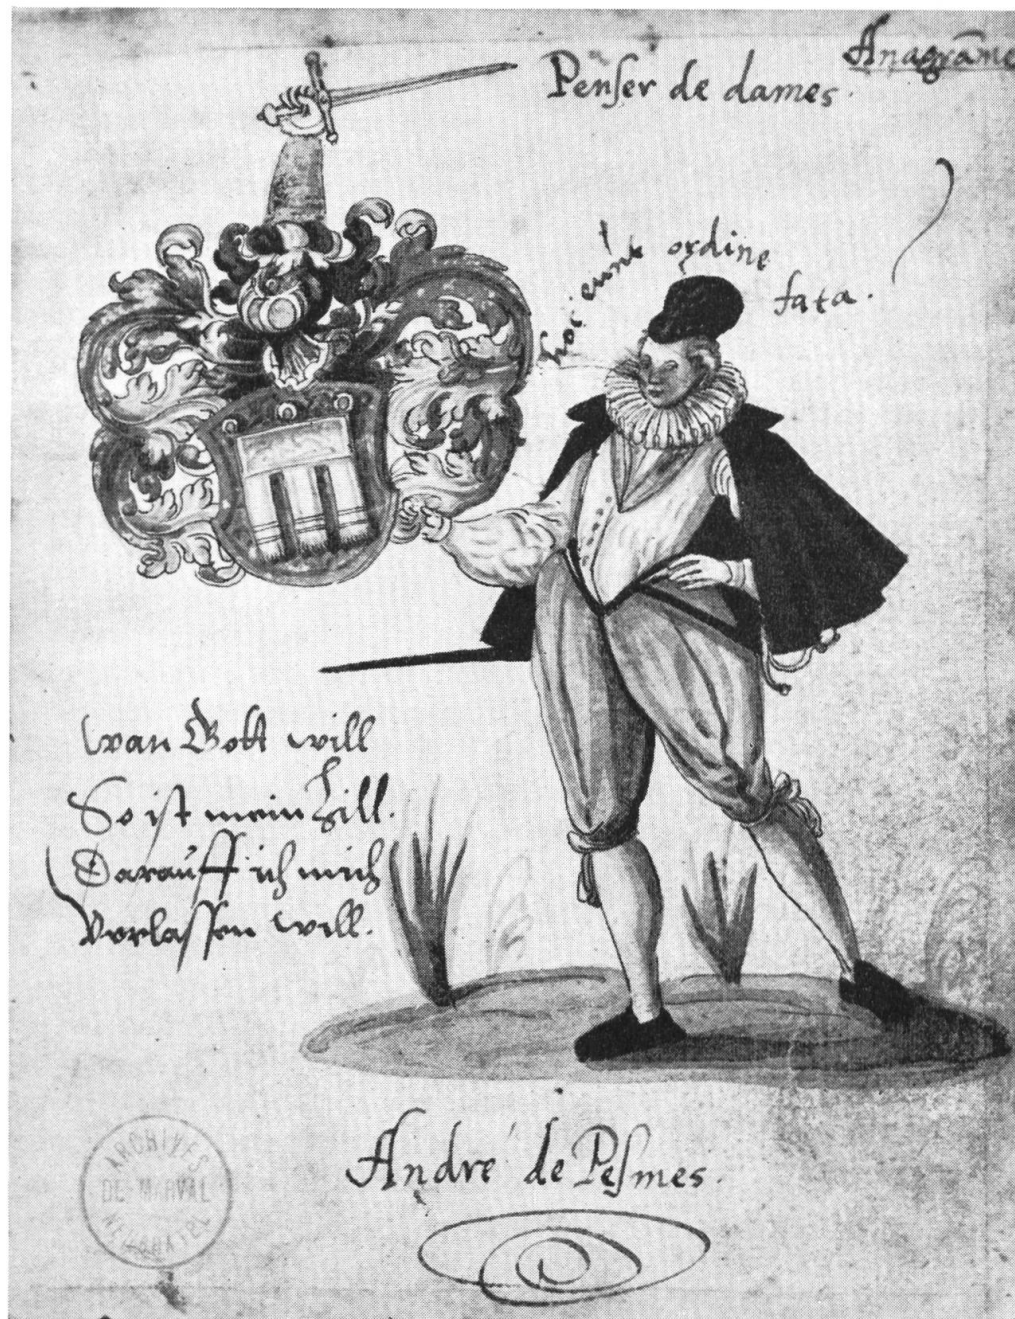 Anagrāme
Penſer de dames.
hoc eunt ordine fata.
wan Gott will
So iſt mein Zill.
Darauff ich mich
Verlaſſen will.
André de Peſmes.
ARCHIVES
DE MARVAL
NEUCHATEL